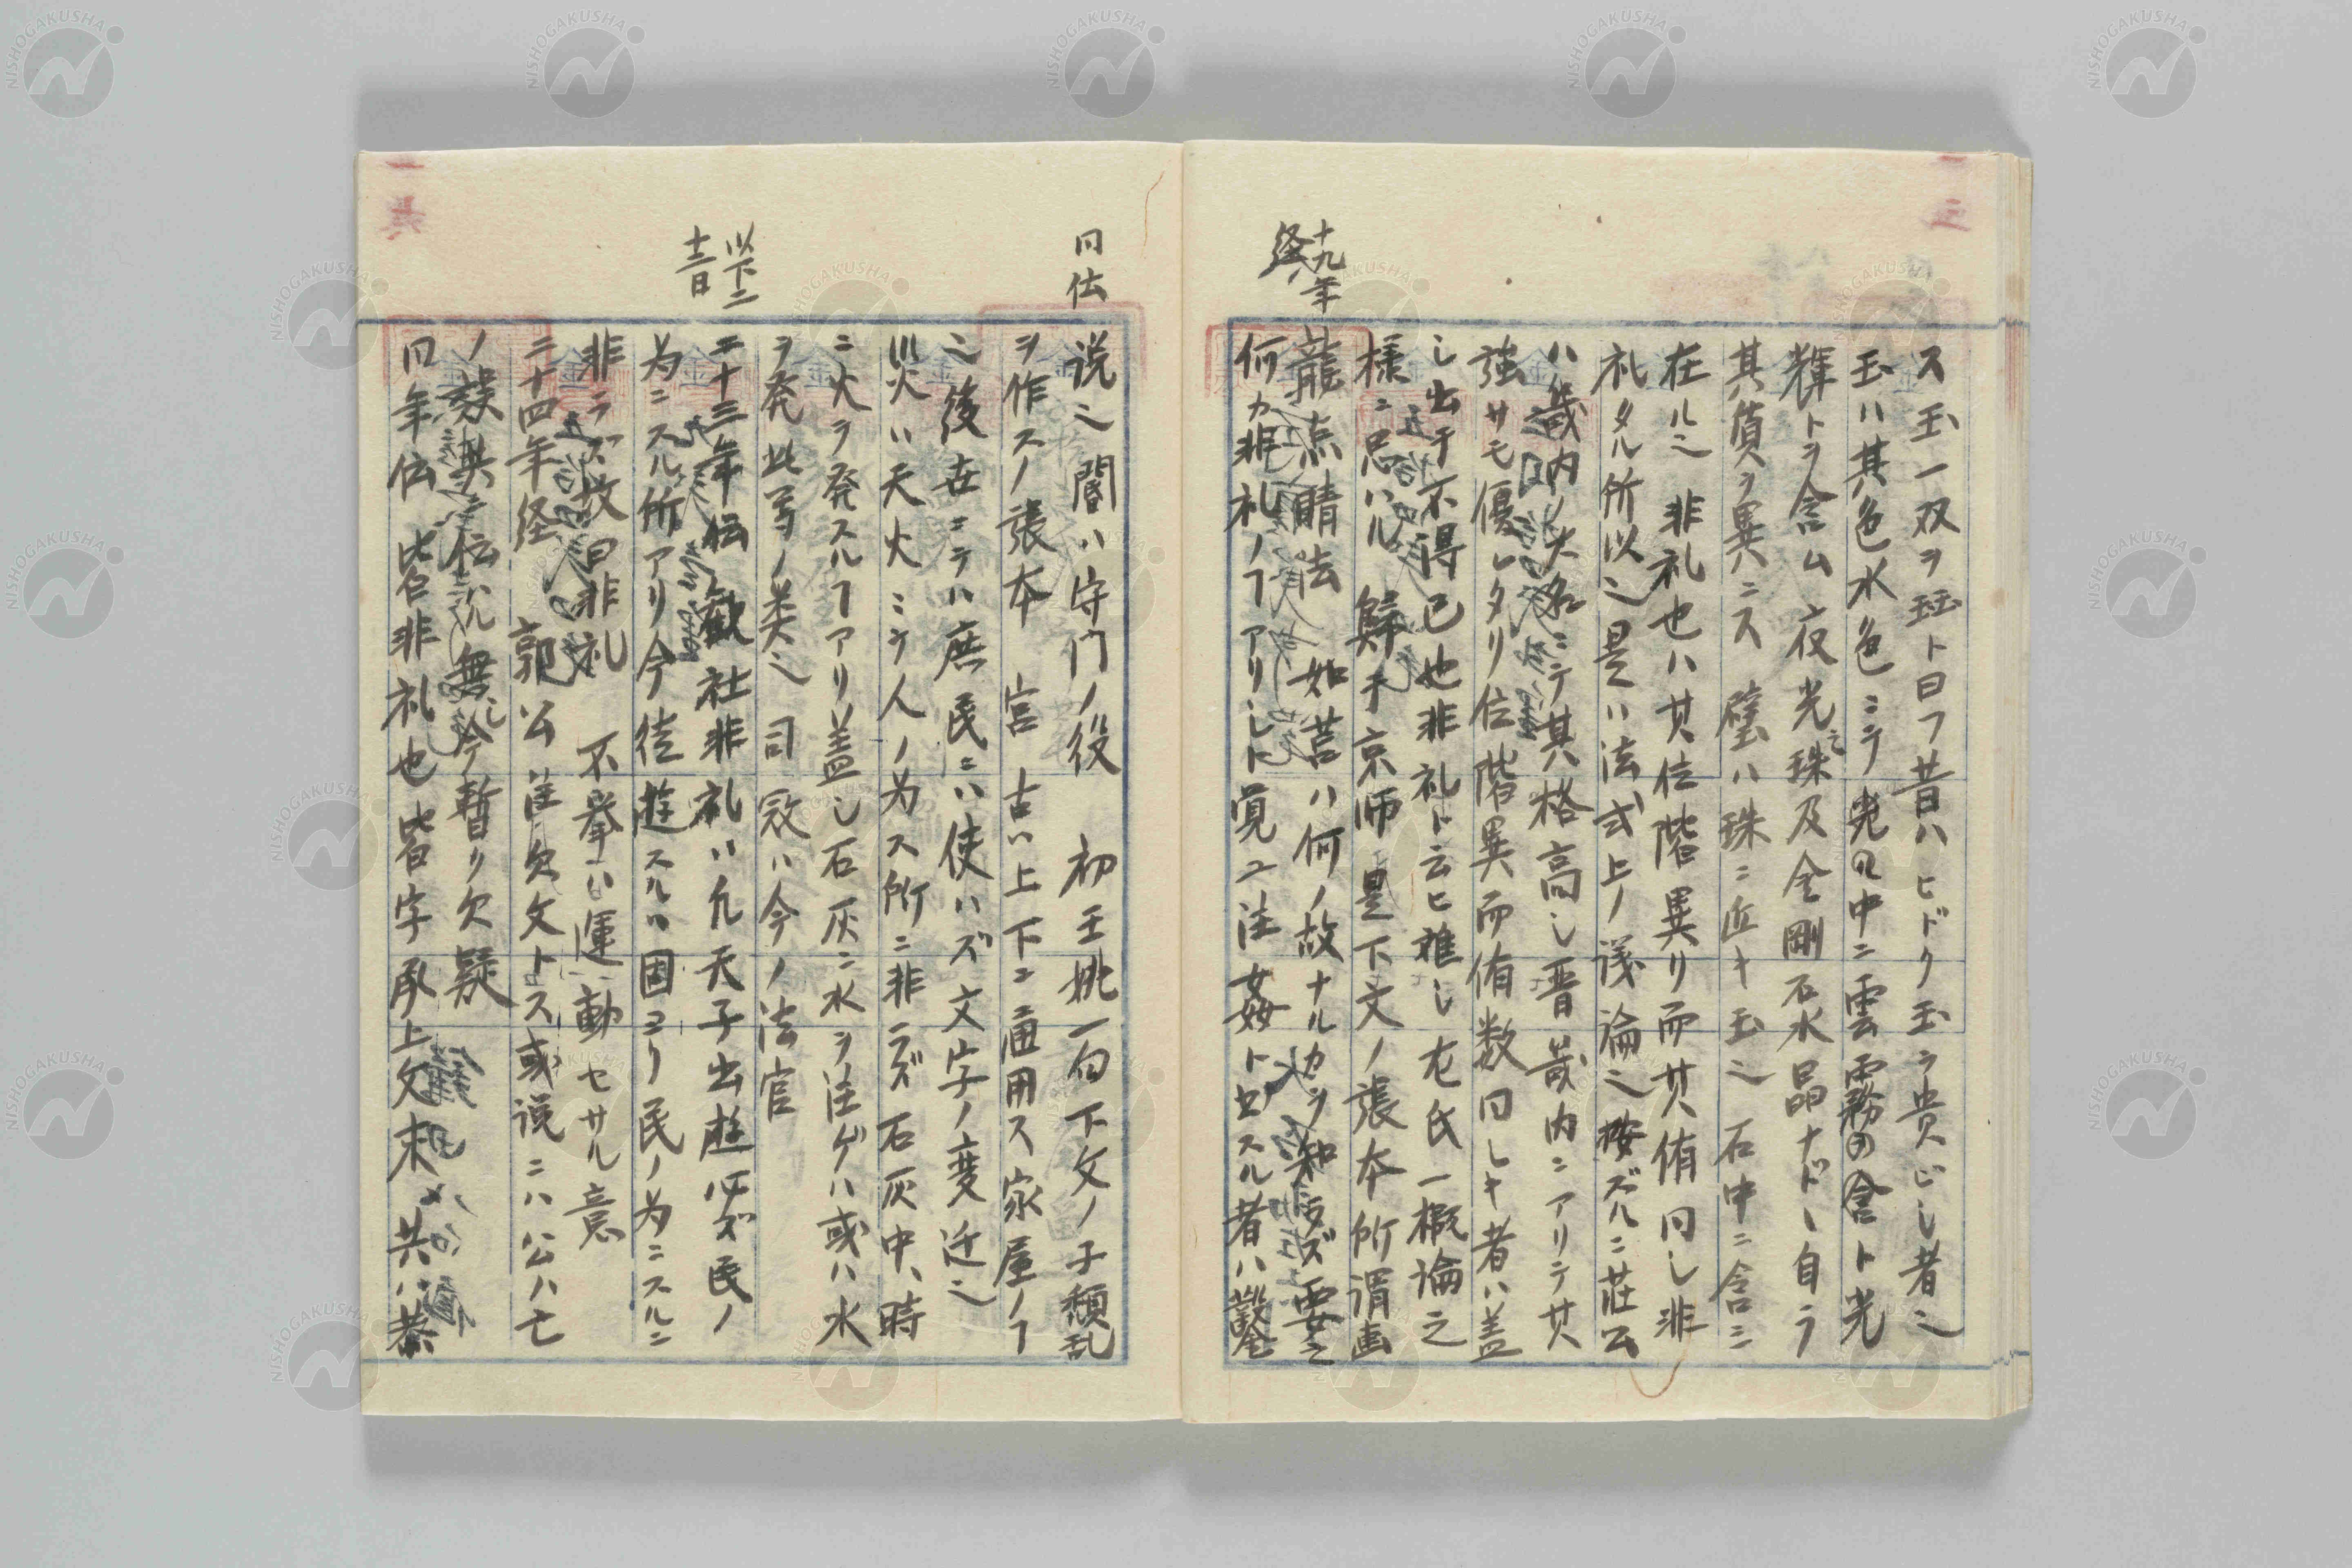 ス玉一双ヲ珏ト曰フ昔ハヒドク玉ヲ貴ビシ者ニ
玉ハ其色水色ニテ光ノ中ニ雲霧ノ含ト光
輝トヲ含ム 夜光之珠及金剛石水晶ナド、自ラ
其質ヲ異ニス 璧ハ珠ニ近キ玉ニ 石中ニ含ニ
在ルニ 非礼也ハ其位階異リ而其侑同シ非
礼タル所以ニ是ハ法式上ノ議論ニ按ズルニ荘公
ハ畿内ノ大名ニテ其格高シ晋畿内ニアリテ其
強サモ優レタリ位階異而侑数同シキ者ハ蓋
シ出于不得已也非礼ト云ヒ雖シ左氏一概論之
様ニ思ハル 歸于京師 是下文ノ張本所謂画
十九年
経
龍点睛法 如莒ハ何ノ故ナルカヲ知ラズ要之
何カ非礼ノフアリシト覚ユ注姦ト出スル者ハ鑿
同伝
説ニ 閽ハ守門ノ役 初王姚一句下文ノ子頽乱
ヲ作スノ張本 宮 古ハ上下ニ通用ス家屋ノフ
ニ後世ニテハ庶民ニハ使ハズ文字ノ変迁ニ
災火ハ天火ニテ人ノ為ス所ニ非ラズ石灰中、時
ニ火ヲ発スルフアリ蓋シ石灰ニ水ヲ注ゲハ或ハ水
ヲ発此等ノ类ニ 司寇ハ今ノ法官
以下二
十二日
二十三年伝 観社非礼ハ凡天子出遊必ズ民ノ
為ニスル所アリ今徒遊スルハ固ヨリ民ノ為ニスルニ
非ラズ故曰非礼 不挙ハ運動セサル意
二十四年経 郭公 注欠文トス或説ニハ公ハ亡
ノ誤其伝ハ無シ今暫ク欠疑
同年伝 皆非礼也 皆字承上文来 共ハ恭